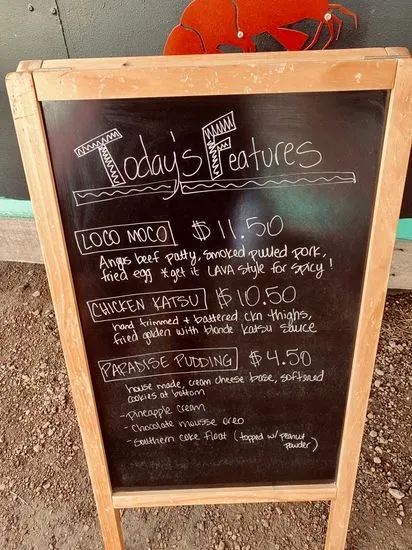 Today's Features
LOCO MOCO $11.50
Angus beef patty, smoked pulled pork,
fried egg *get it LAVA style for spicy!
CHICKEN KATSU $10.50
hand trimmed + battered ckn thighs,
fried golden with blonde katsu sauce
PARADISE PUDDING $4.50
house made, cream cheese base, softened
cookies at bottom
-Pineapple cream
- Chocolate mousse oreo
- Southern coke float (topped w/ peanut
powder)